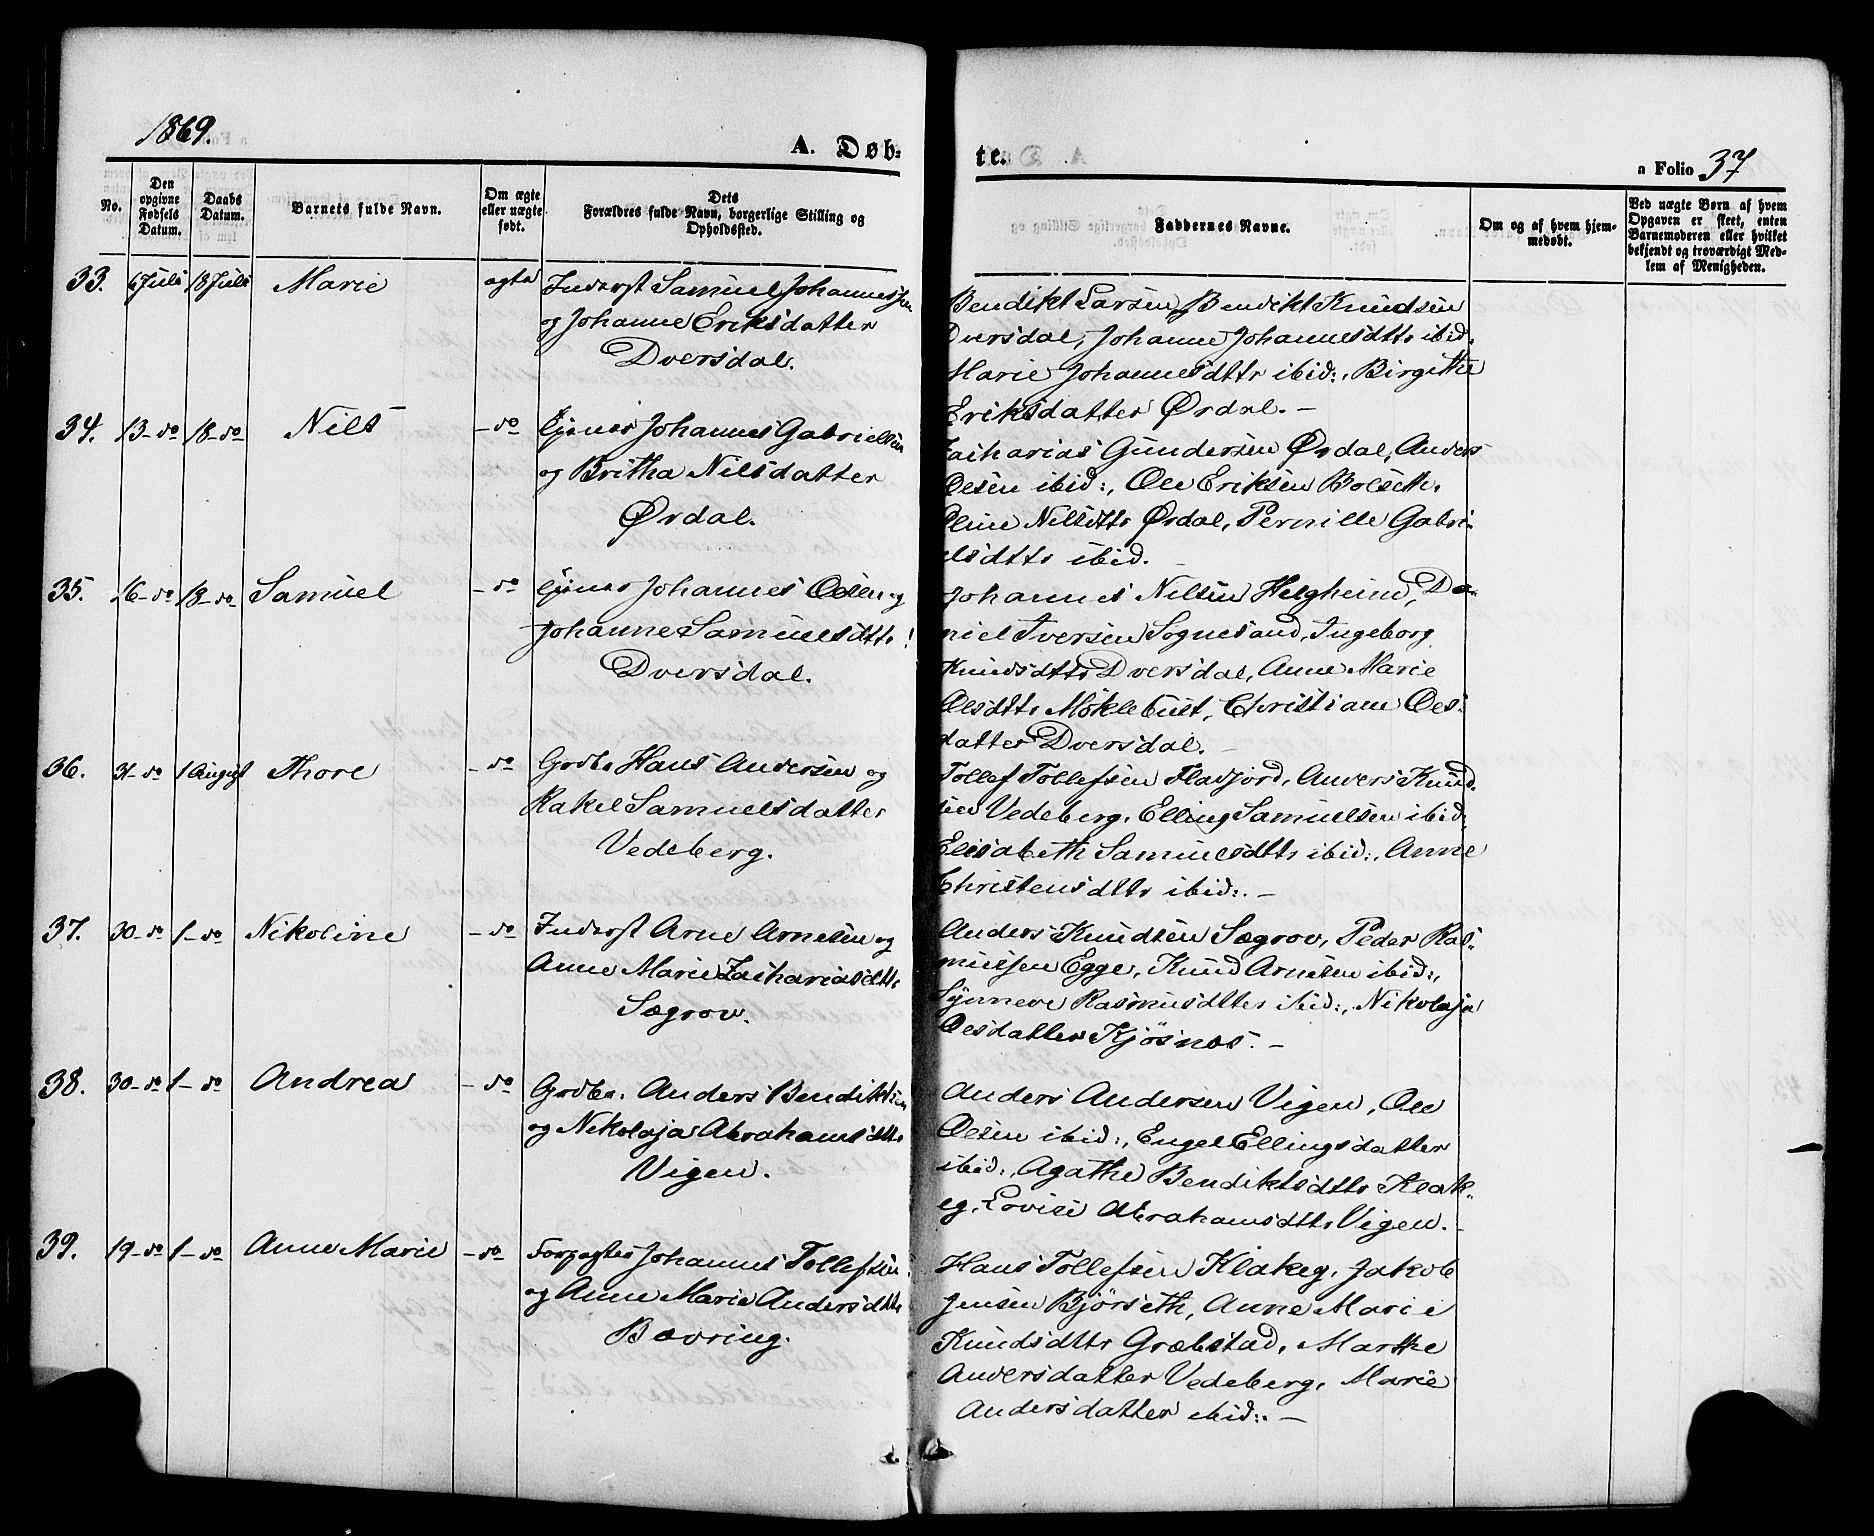 1869.
A. Døb-
te.
a Folio 37
No.
Den opgivne Fødsels Datum.
Daabs Datum.
Barnets fulde Navn.
Om ægte eller uægte født.
Dets Forældres fulde Navn, borgerlige Stilling og Opholdssted.
Faddernes Navne.
Om og af hvem hjem-
medøbt.
Ved uægte Børn af hvem
Opgaven er skeet, enten
Barnemoderen eller hvilket
bekjendt og troværdigt Med-
lem af Menigheden.
33. 6 Juli 18 Juli Marie ægte Inderst Samuel Johannesen
og Johanne Eriksdatter
Dversdal.
Bendikt Larsen, Bendikt Knudsen
Dversdal, Johanne Johannesdttr ibid.
Marie Johannesdttr ibid:, Birgithe
Eriksdatter Ørdal. –
34. 13 – do 18 – do Nils – do Ejener Johannes Gabrielsen
og Britha Nilsdatter
Ørdal.
Zacharias Gundersen Ørdal, Anders
Olsen ibid:, Ole Eriksen Bolseth.
Oline Nilsdttr Ørdal, Pernille Gabri-
elsdttr ibid.
35. 16 – do 18 – do Samuel – do Ejener Johannes Olsen og
Johanne Samuelsdttr!
Dversdal.
Johannes Nilsen Helgheim, Da-
niel Iversen Sognesand, Ingeborg
Knudsdttr Dversdal, Anne Marie
Olsdttr Møklebust, Christiane Ols-
datter Dversdal. –
36. 31 – do 1 August Thore – do Grdbr Hans Andersen og
Rakel Samuelsdatter
Vedeberg.
Tollef Tollefsen Fladfjord, Anders Knud-
sen Vedeberg, Elling Samuelsen ibid:
Elisabeth Samuelsdttr ibid:, Anne
Christensdttr ibid:. –
37. 30 – do 1 – do Nikoline – do Inderst Arne Arnesen og
Anne Marie Zachariasdttr
Sægrov.
Anders Knudsen Sægrov, Peder Ras-
mussen Egge, Knud Arnesen ibid:,
Synneve Rasmusdtter ibid:, Nikolaja
Olsdatter Kjøsnæs. –
38. 30 – do 1 – do Andrea – do Grdbr. Anders Bendiktsen
og Nikolaja Abrahamsdttr
Vigen.
Anders Andersen Vigen, Ole
Olsen ibid:, Engel Ellingsdatter
ibid:, Agathe Bendiktsdttr Klak-
eg, Lovise Abrahamsdttr Vigen. –
39. 19 – do 1 – do Anne Marie – do Forpagter Johannes Tollefsen
og Anne Marie Andersdttr
Bævring.
Hans Tollefsen Klakeg, Jakob
Jensen Bjørseth, Anne Marie
Knudsdttr Græbstad, Marthe
Andersdatter Vedeberg, Marie
Andersdatter ibid:. –